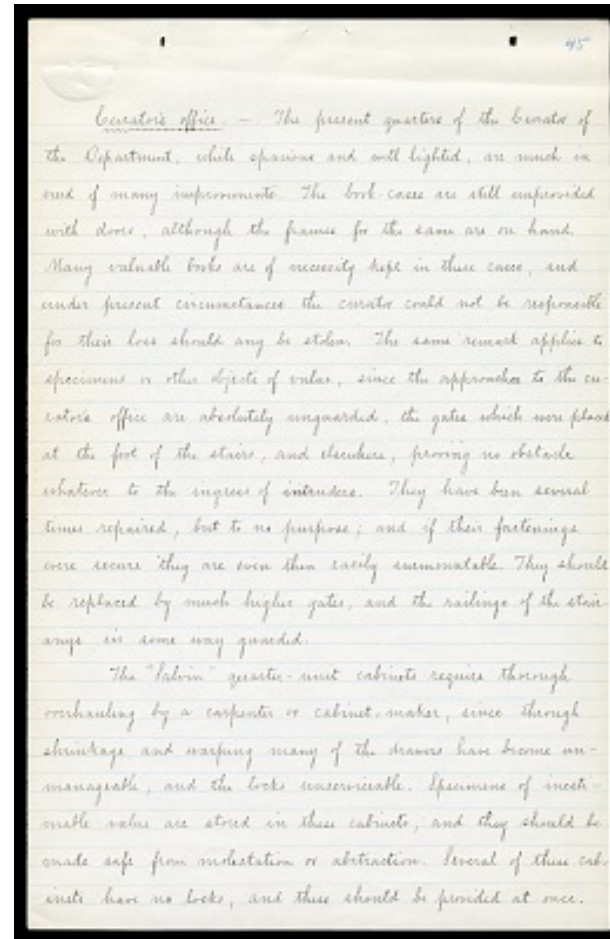 45
Curator's office. — The present quarters of the Curator of
the Department, while spacious and well lighted, are much in
need of many improvements. The book-cases are still unprovided
with doors, although the frames for the same are on hand.
Many valuable books are of necessity kept in these cases, and
under present circumstances the curator could not be responsible
for their loss should any be stolen. The same remark applies to
specimens or other objects of value, since the approaches to the cu-
rator's office are absolutely unguarded, the gates which were placed
at the foot of the stairs, and elsewhere, proving no obstacle
whatever to the ingress of intruders. They have been several
times repaired, but to no purpose; and if their fastenings
were secure they are even then easily surmountable. They should
be replaced by much higher gates, and the railings of the stair
ways in some way guarded.
The "Salvin" quarter-unit cabinets require thorough
overhauling by a carpenter or cabinet-maker, since through
shrinkage and warping many of the drawers have become un-
manageable, and the locks unserviceable. Specimens of inesti-
mable value are stored in these cabinets, and they should be
made safe from molestation or abstraction. Several of these cab-
inets have no locks, and these should be provided at once.